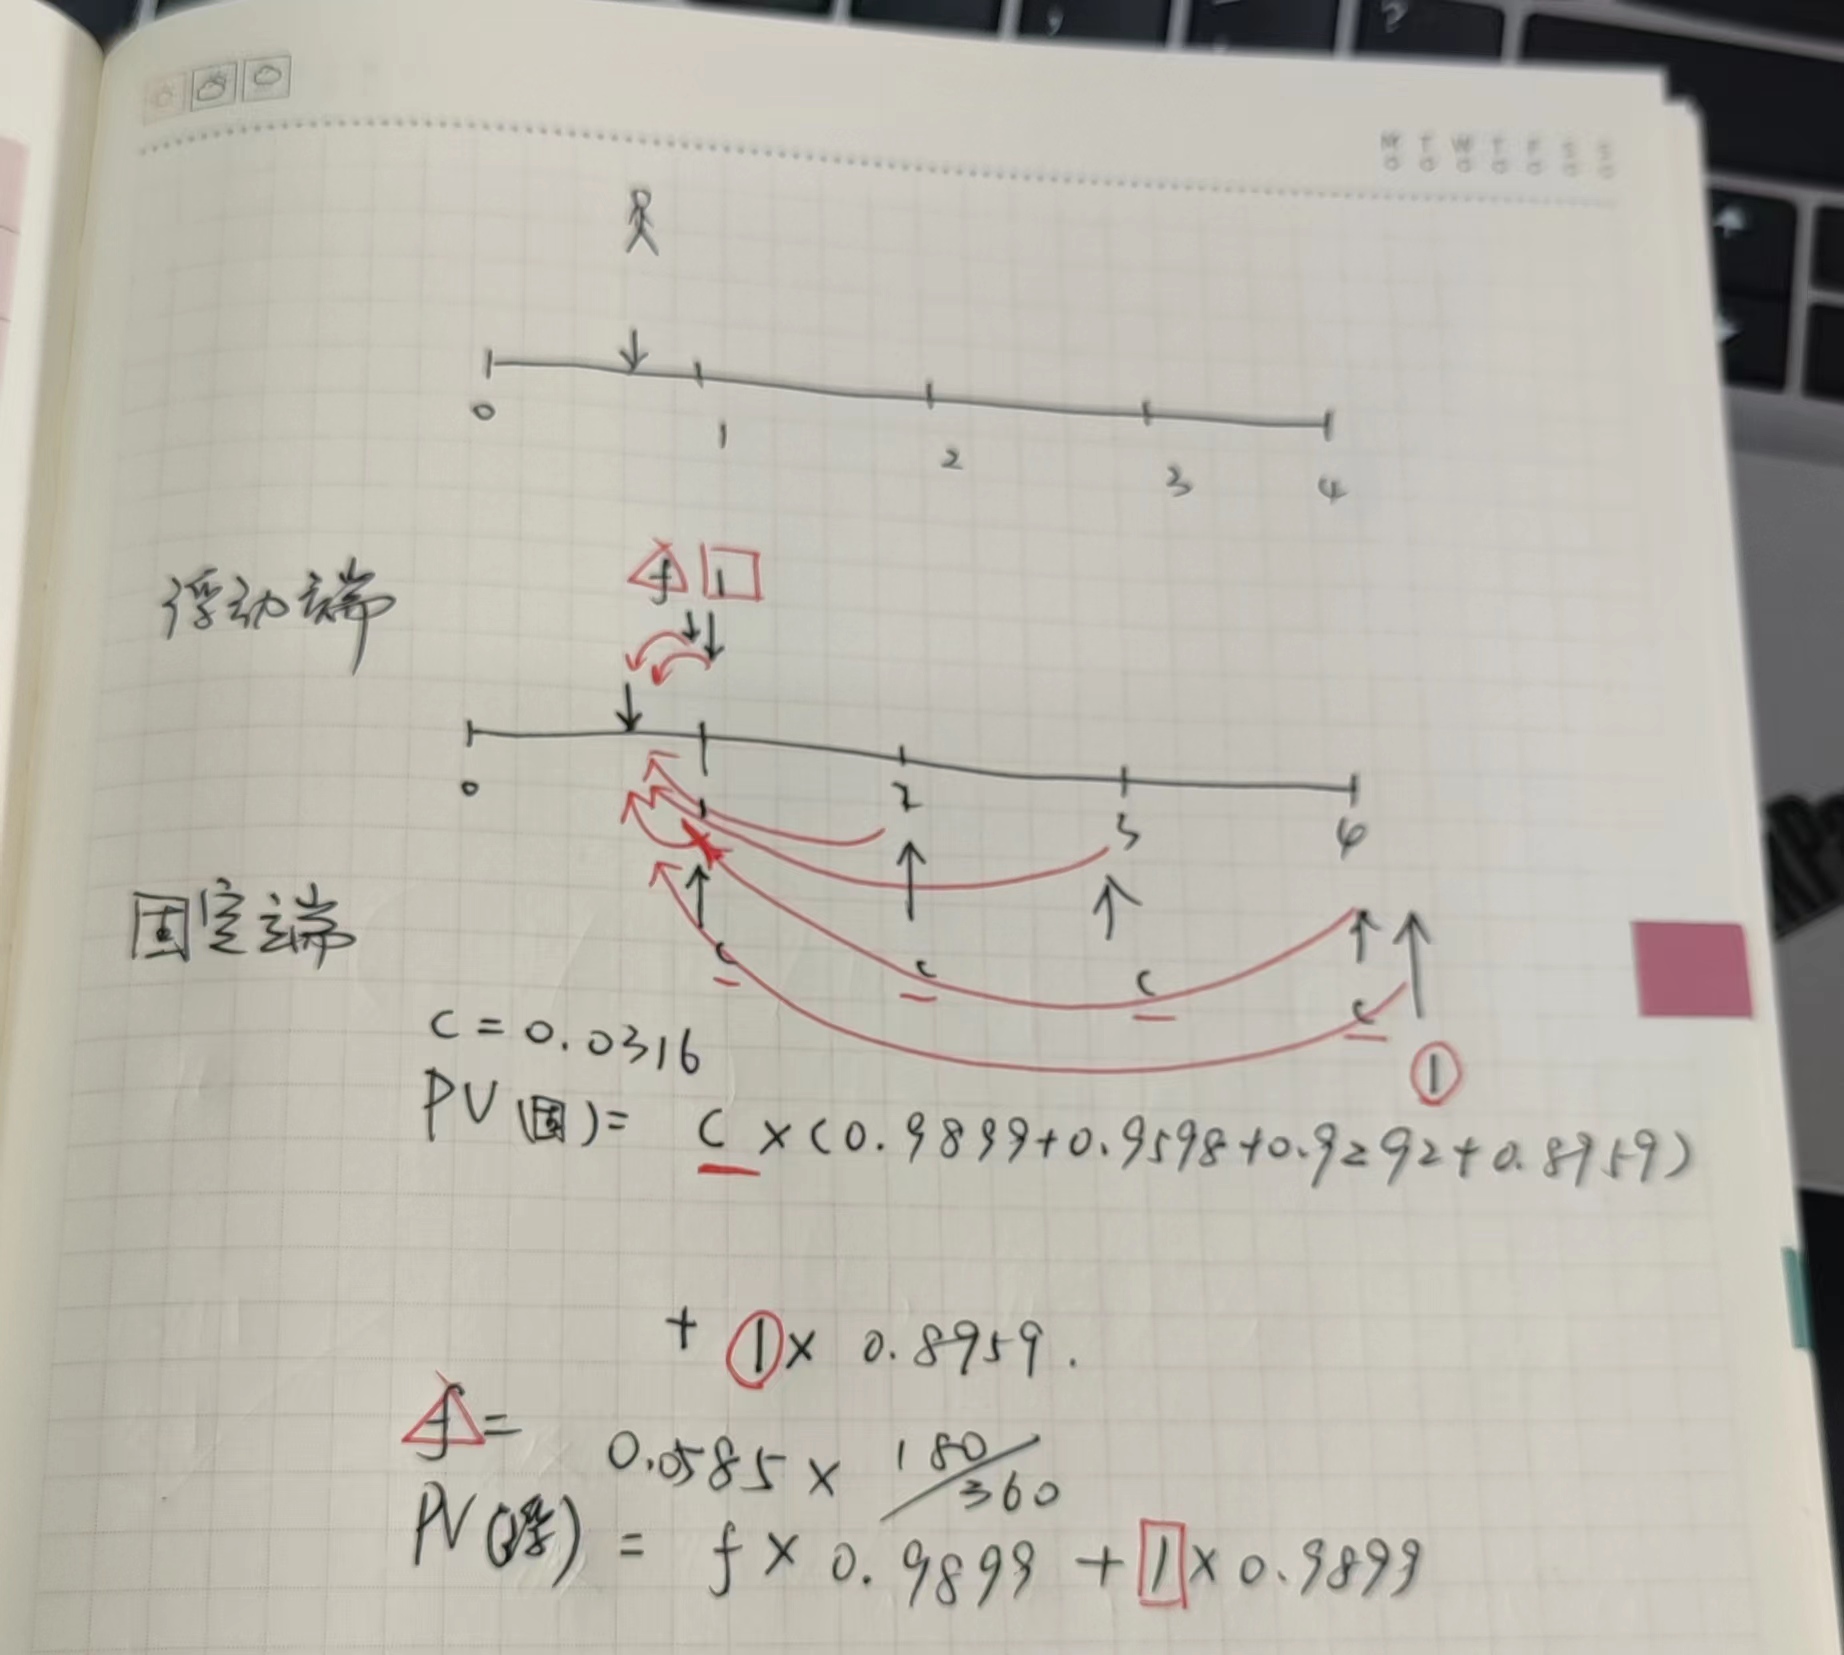 0 1 2 3 4
浮动端
f 1
0 1 2 3 4
固定端
c c c c
1
c = 0.0316
PV (固) = c × (0.9899+0.9598+0.9292+0.8959)
+ 1 × 0.8959.
f = 0.0585 × 180/360
PV (浮) = f × 0.9899 + 1 × 0.9899